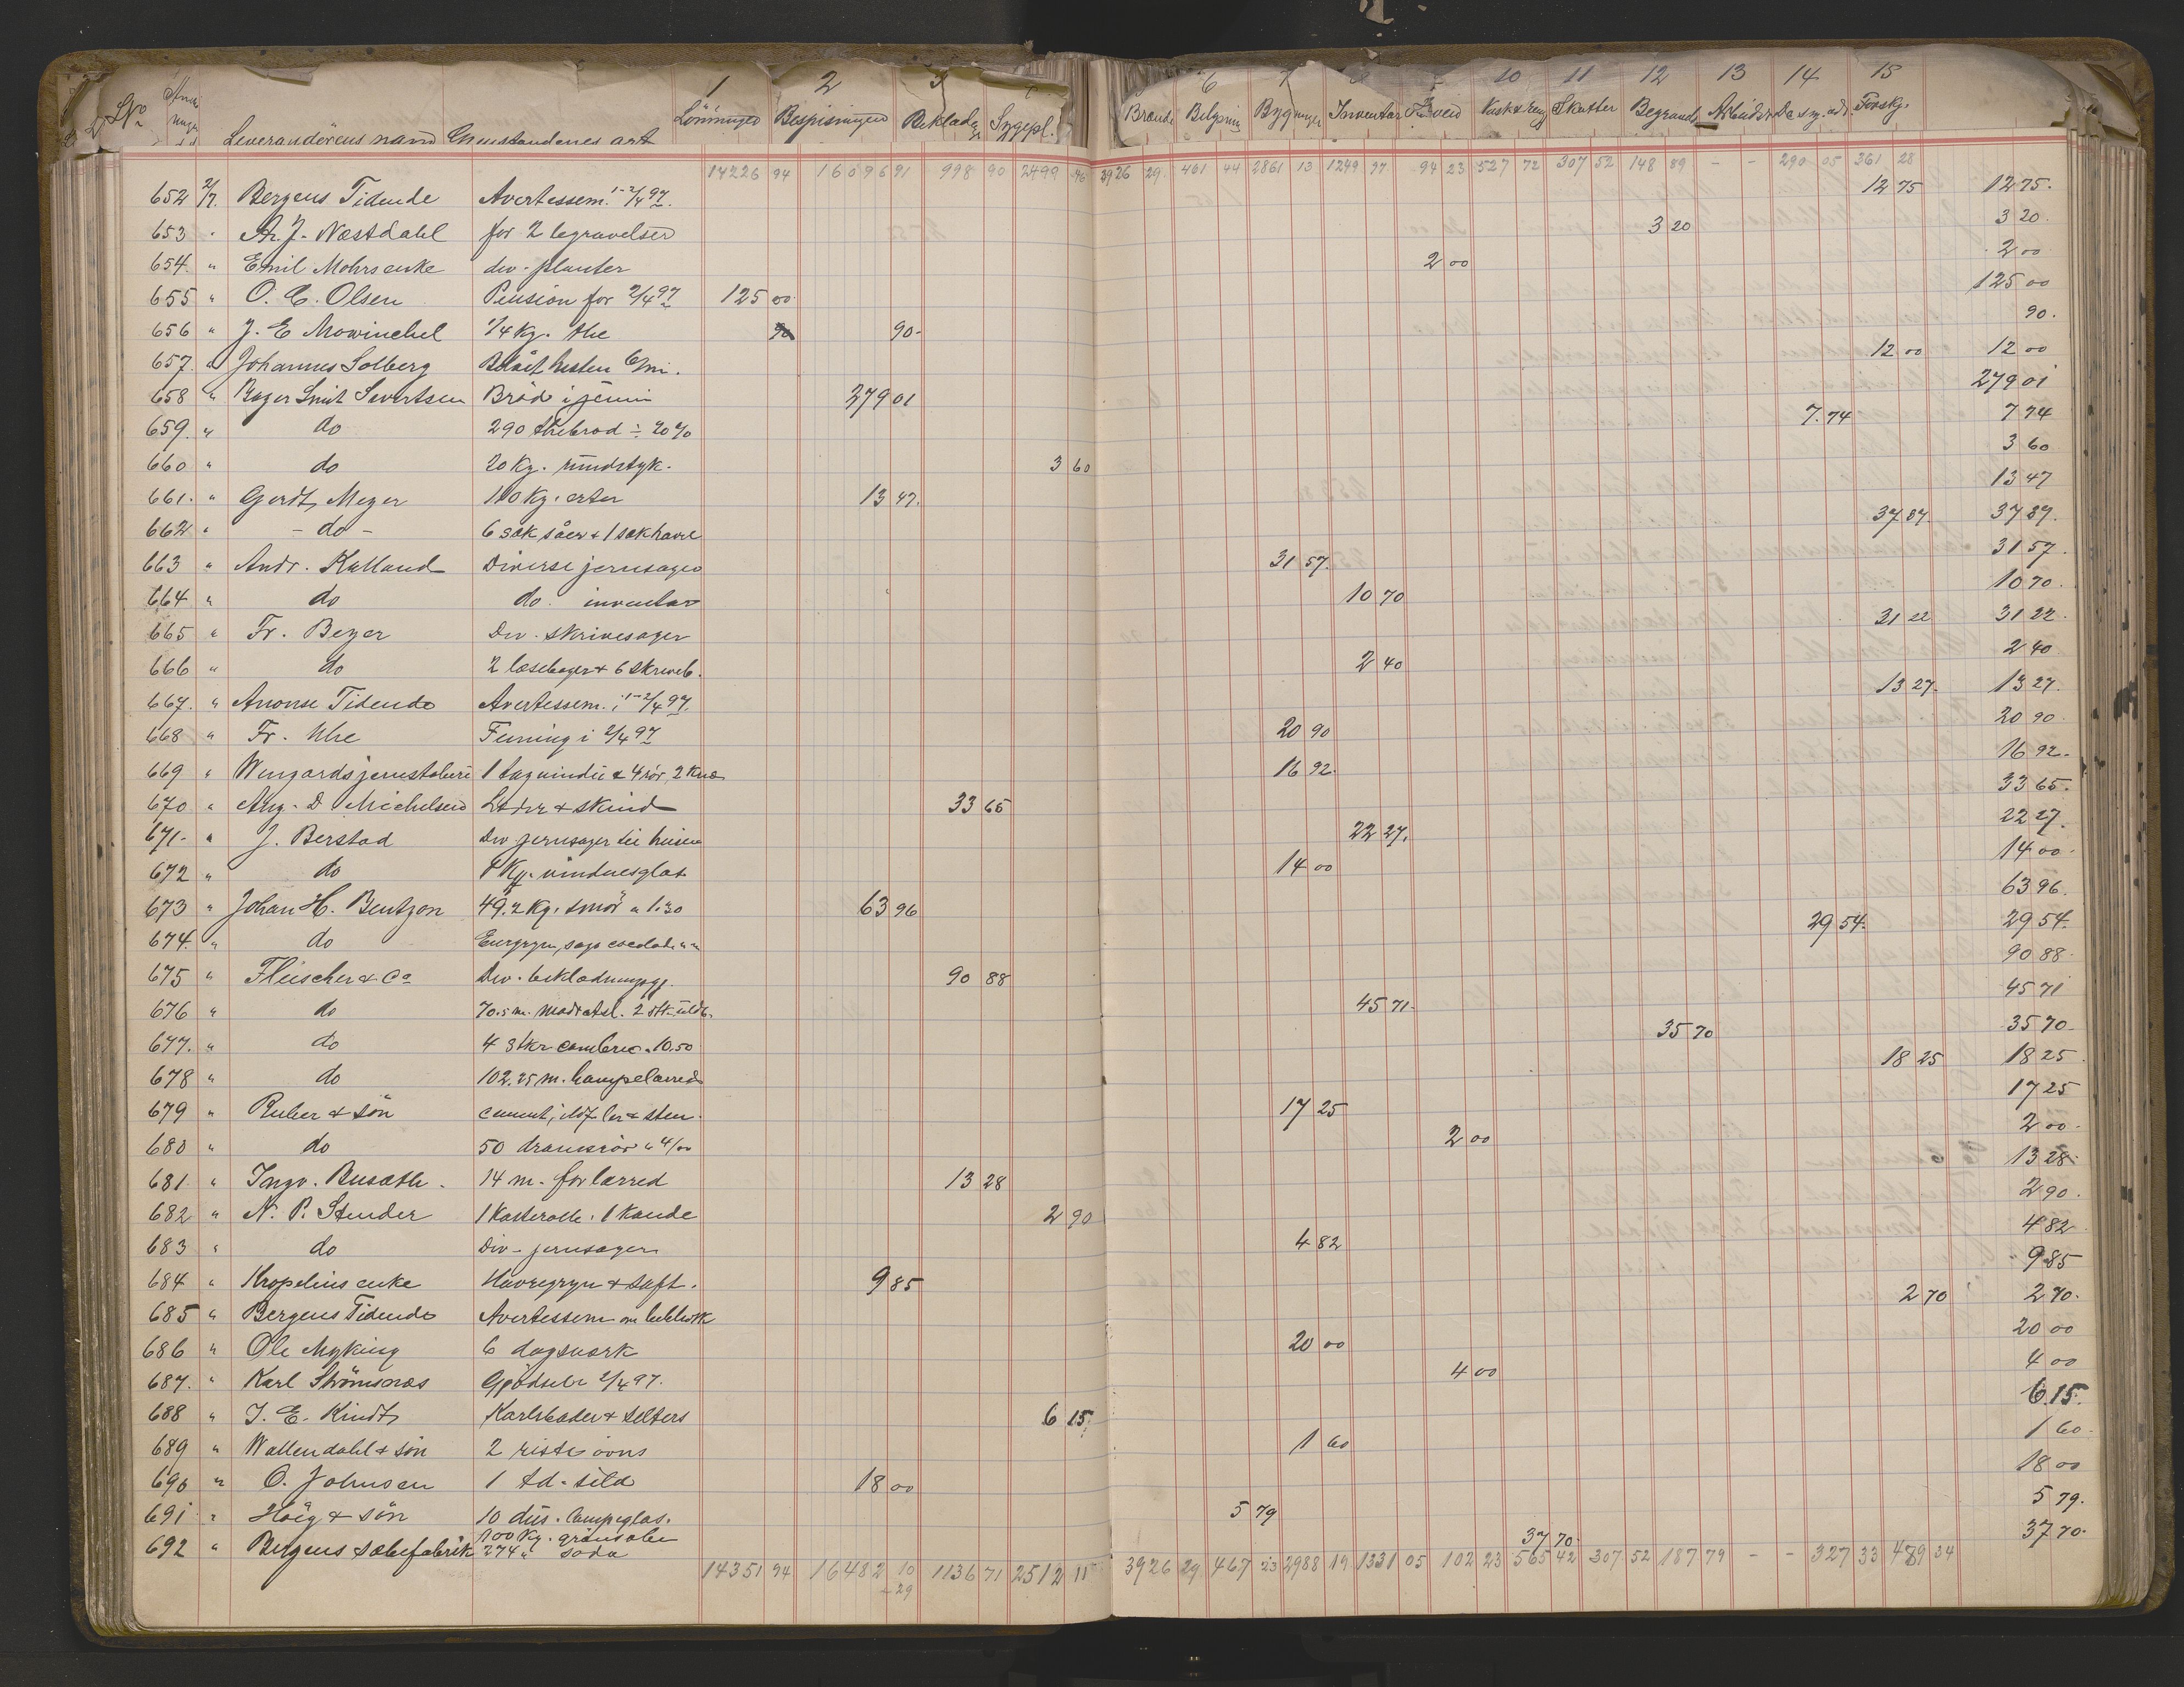 1 2 3 6 7 10 11 12 13 14 15
No Leverandörens navn Gjenstandenes art Lönninger Bespisningen Beklædn Sygepl. Brænde Belysnin Bygninger Inventar Vask & Reng Skatter Begravels Arbeider Forskj.
14226 94 16096 91 998 90 2499 46 3926 29 461 44 2861 13 1249 97 94 23 527 72 307 52 148 89 - - 290 05 361 28
652 2/7. Bergens Tidende Avertissem. 1-2/4 97. 12 75 12 75.
653 " Næstdahl for 2 begravelser 3 20 3 20.
654. " Emil Mohrs enke div. planter 2 00 2 00
655 " O. E. Olsen Pension for 2/4 97 125 00 125 00
656 " J. E Mowinckel 1/4 Kg. the 90 90. 90.
657. " Johannes Solberg hesten 12 00 12 00
658 " Roger Smit Sivertsen Bröd i juni 279 01 279 01
659. " do 290 thebrød ÷ 20% 7.74 7 74
660 " do 20 Kg. rundstyk. 3 60 3 60
661. " Gerdt Meyer 110 Kg. erter 13 47. 13 47
662 " - do - 6 sæk såer + 1 sæk havre 37 87 37 87.
663 " Andr. Kalland Diverse jernsager 31 57. 31 57.
664 " do do. inventar 10 70 10 70.
665 " Fr. Beyer Div. skrivesager 31 22 31 22.
666 " do 2 læsebøger + 6 skriveb. 2 40 2 40
667. " Anonse Tidende Avertissem. i 1-2/4 97. 13 27. 13 27.
668 " Fr. Uhe Feining i 2/4 97 20 90 20 90.
669 " Wingaards jernstøberi 1 tagvindu & 4 rör, 2 knæ 16 92. 16 92.
670 " Aug. D. Michelsen Læder & skind 33 65 33 65.
671. " J. Berstad Div jernsager til huset 22 27. 22 27.
672 " do Kg. vinduesglas 14 00 14 00.
673 " Johan H. Bentzon 49.2 Kg. smör a 1.30 63 96 63 96.
674. " do sago 29 54. 29 54.
675 " Fleischer & Co Div. beklædningsgj. 90 88 90 88.
676 " do 70.5 m. 2 stk uldt. 45 71. 45 71
677. " do 4 stkr cambric a 10.50 35 70 35 70.
678 " do 102.25 m. hampelærred 18 25 18 25.
679 " Ruber & Sön cement, ler & sten. 17 25 17 25
680 " do 50 drænsrör a 4/00 2 00 2 00.
681. " Ingv. 14 m. forlærred 13 28 13 28.
682 " N. P. Stender 1 Kasterolle. 1 Kande 2 90 2 90.
683 " do Div. jernsager 4 82 4 82
684 " Kropelius enke Havregryn & saft. 9 85 9 85
685 " Bergens Tidende Avertissem om bibliotk 2 70 2 70.
686 " Ole Myking 6 dagsverk 20 00 20 00
687. " Karl Strömsnæs Gjødsel 2/4 97. 4 00 4 00
688 " J. E. Kindt Karlsbader & Selters 6 15. 6 15.
689 " Wallendahl & sön 2 riste ovns 1 60 1 60.
690 " O. Johnsen 1 td. sild 18 00 18 00
691 " Höeg & sön 10 dus. lampeglas. 5 79 5 79.
692 " Bergens sæbefabrik 100 Kg. grönsæbe 37 70. 37 70.
274 " soda
14351 94 16482 10 1136 71 2512 11 3926 29 467 23 2988 19 1331 05 102 23 565 42 307 52 187 79 - - 327 33 489 34
29